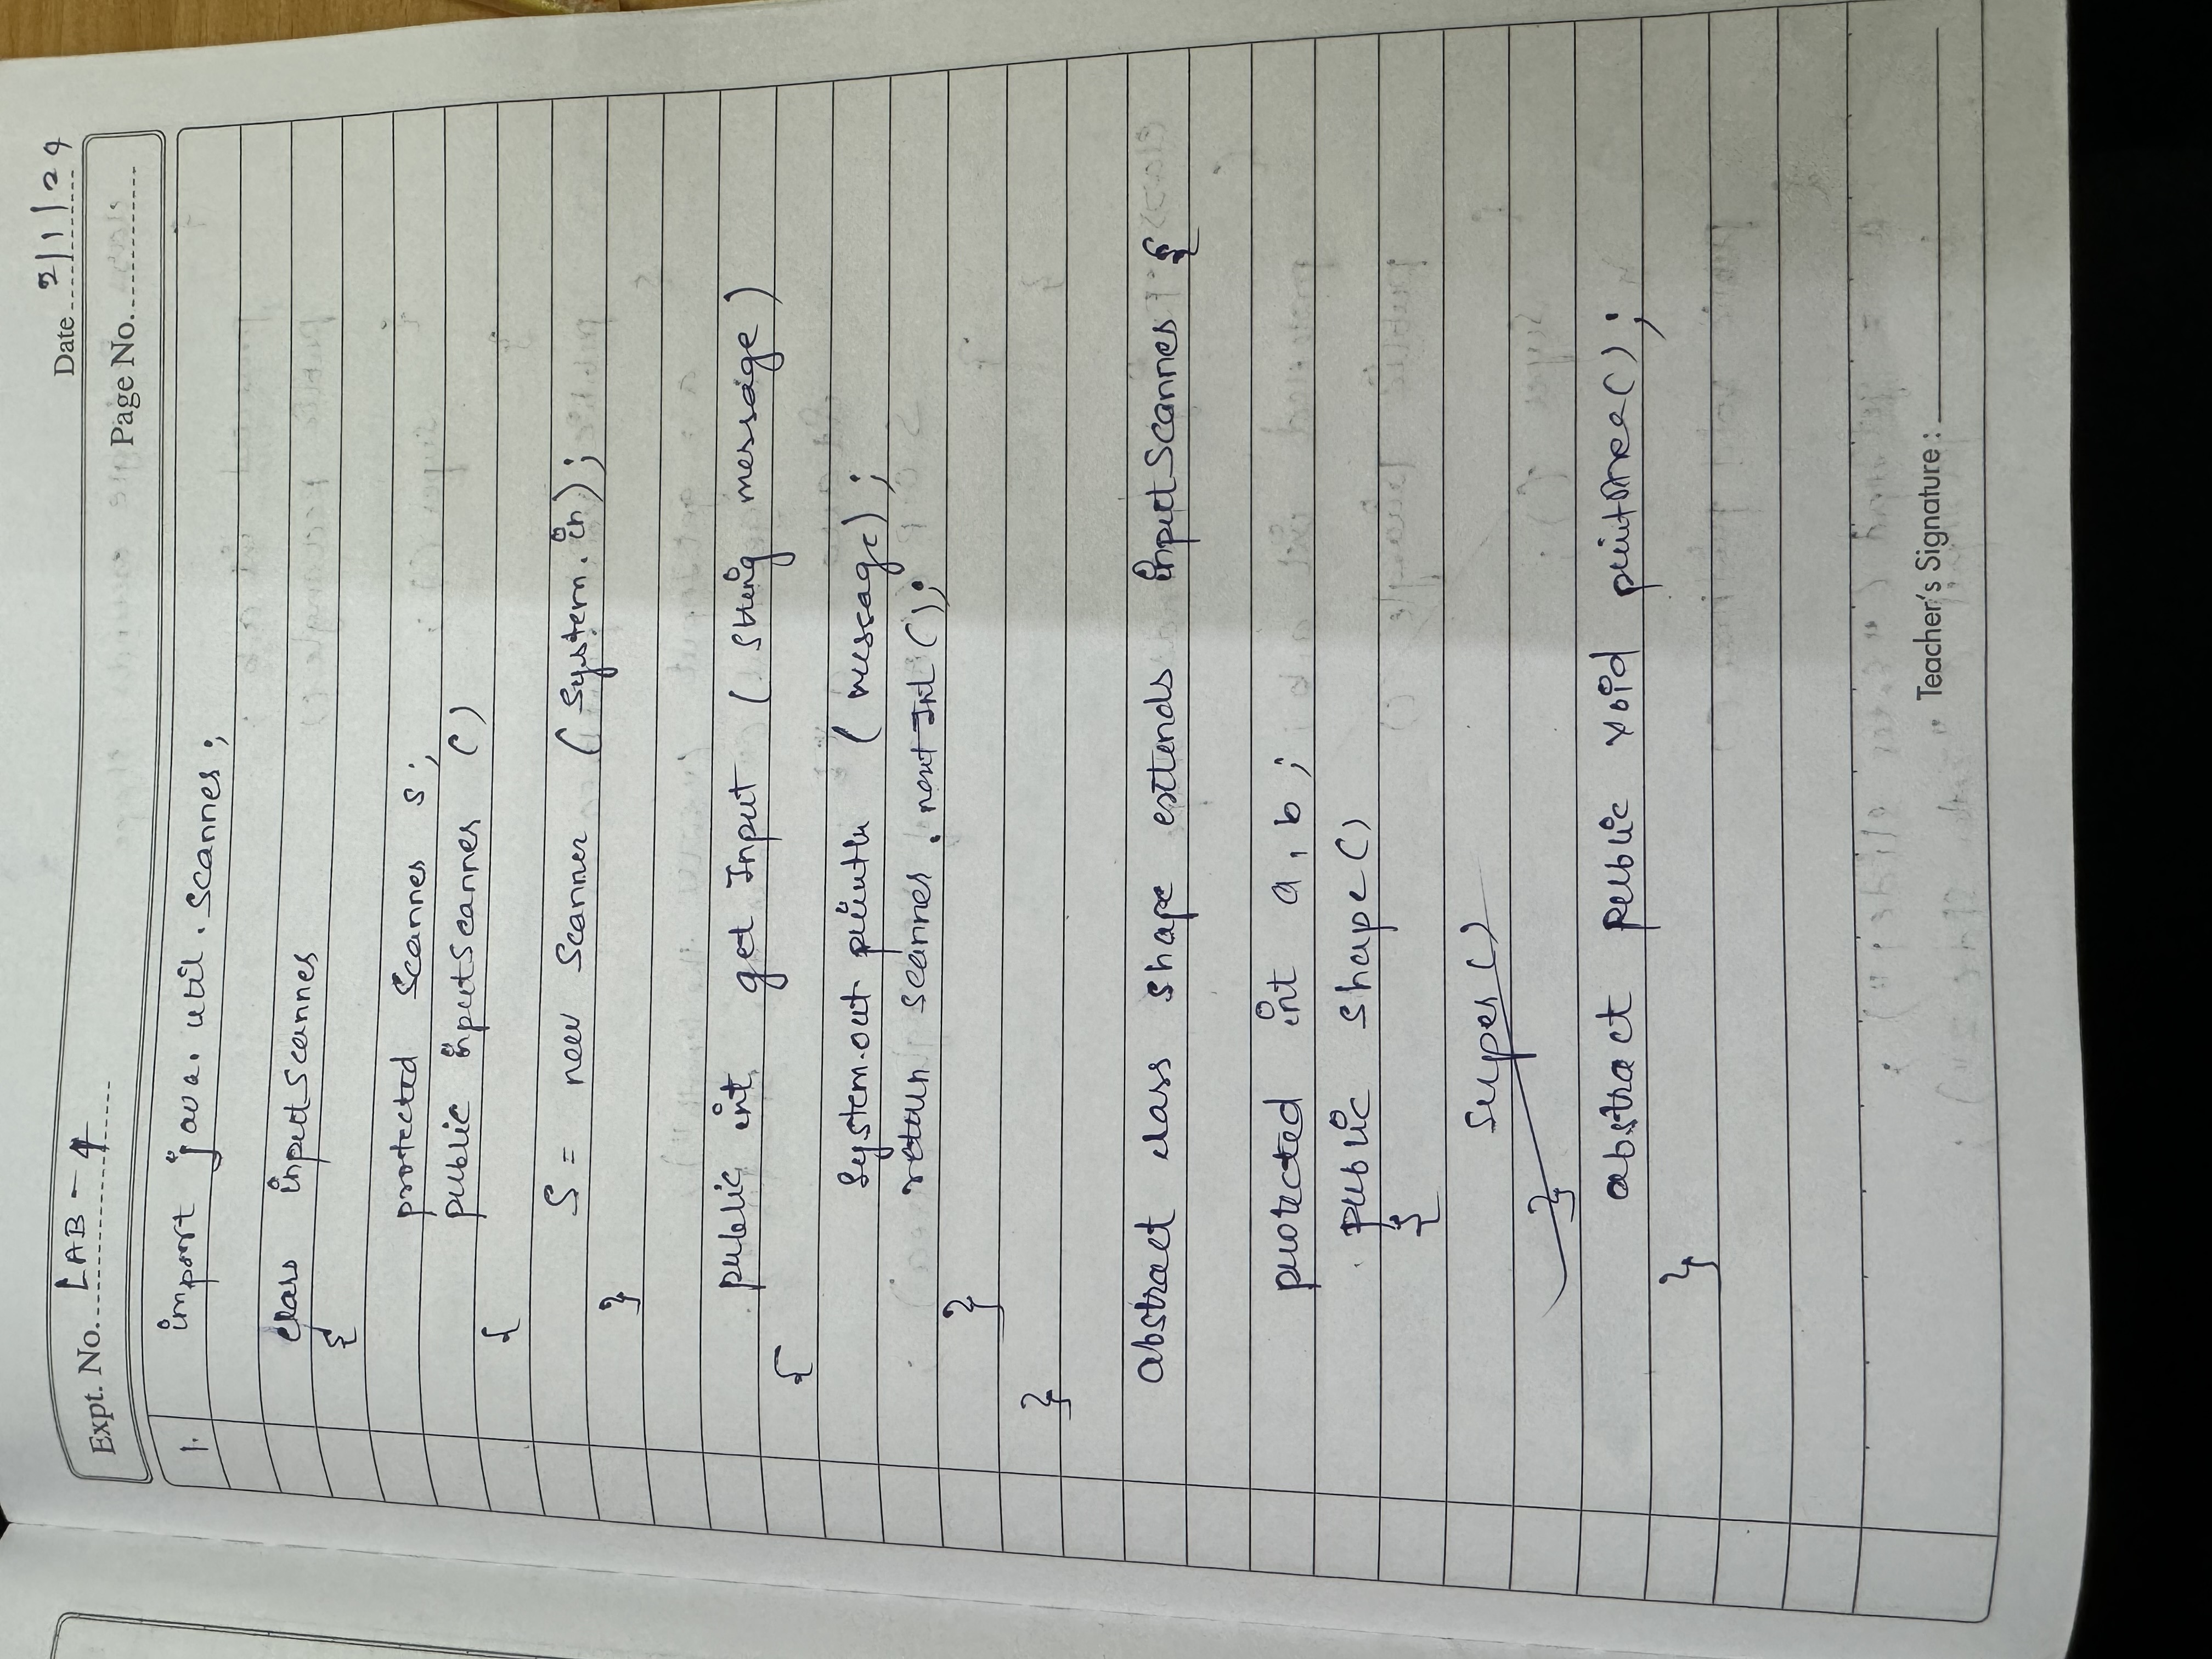 Date 2/1/24
Expt. No. LAB - 4
Page No.
1. import java.util.Scanner;
class inputScanner
{
protected Scanner s;
public inputScanner ()
{
S = new Scanner (System.in);
}
public int getInput (String message)
{
System.out.println (message);
return scanner.nextInt();
}
}
abstract class shape extends inputScanner {
protected int a, b;
public shape()
{
super()
}
abstract public void printArea();
}
Teacher's Signature :